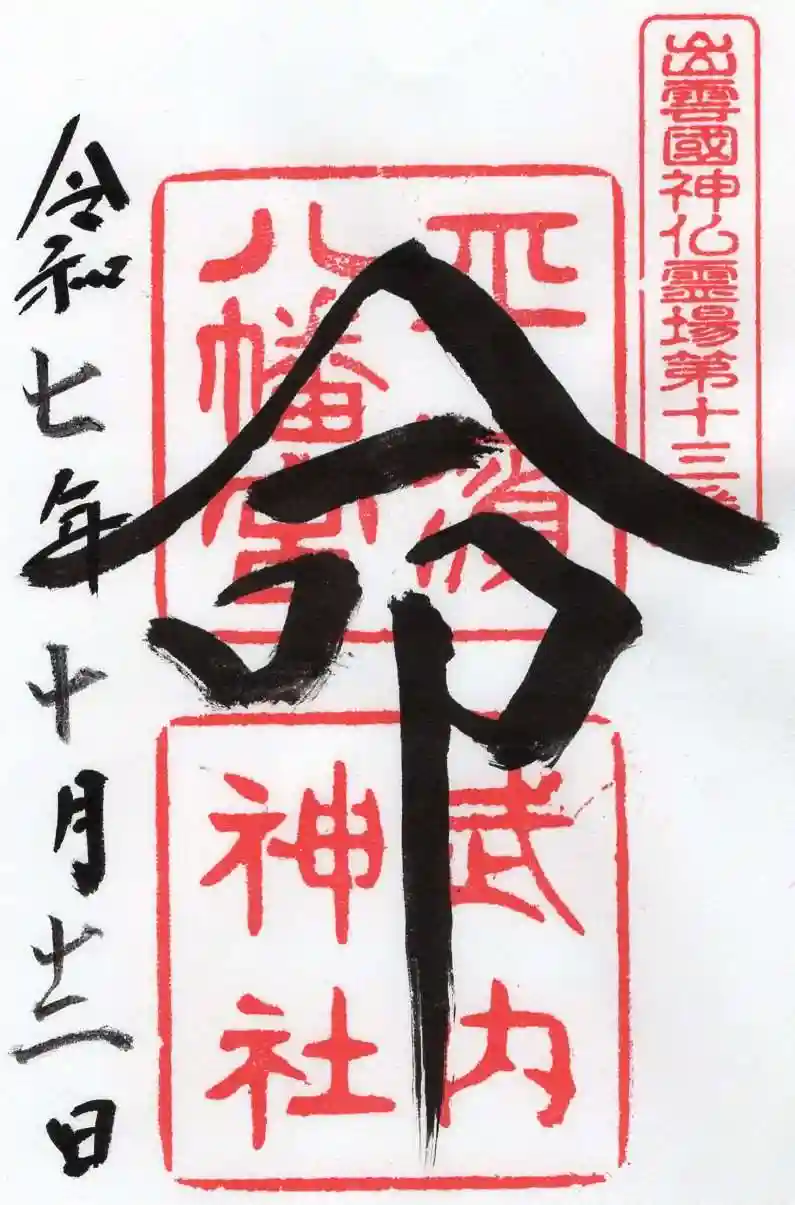 出雲國神仏霊場第十三番
平濱
八幡宮
武内
神社
命
令和七年十月十二日